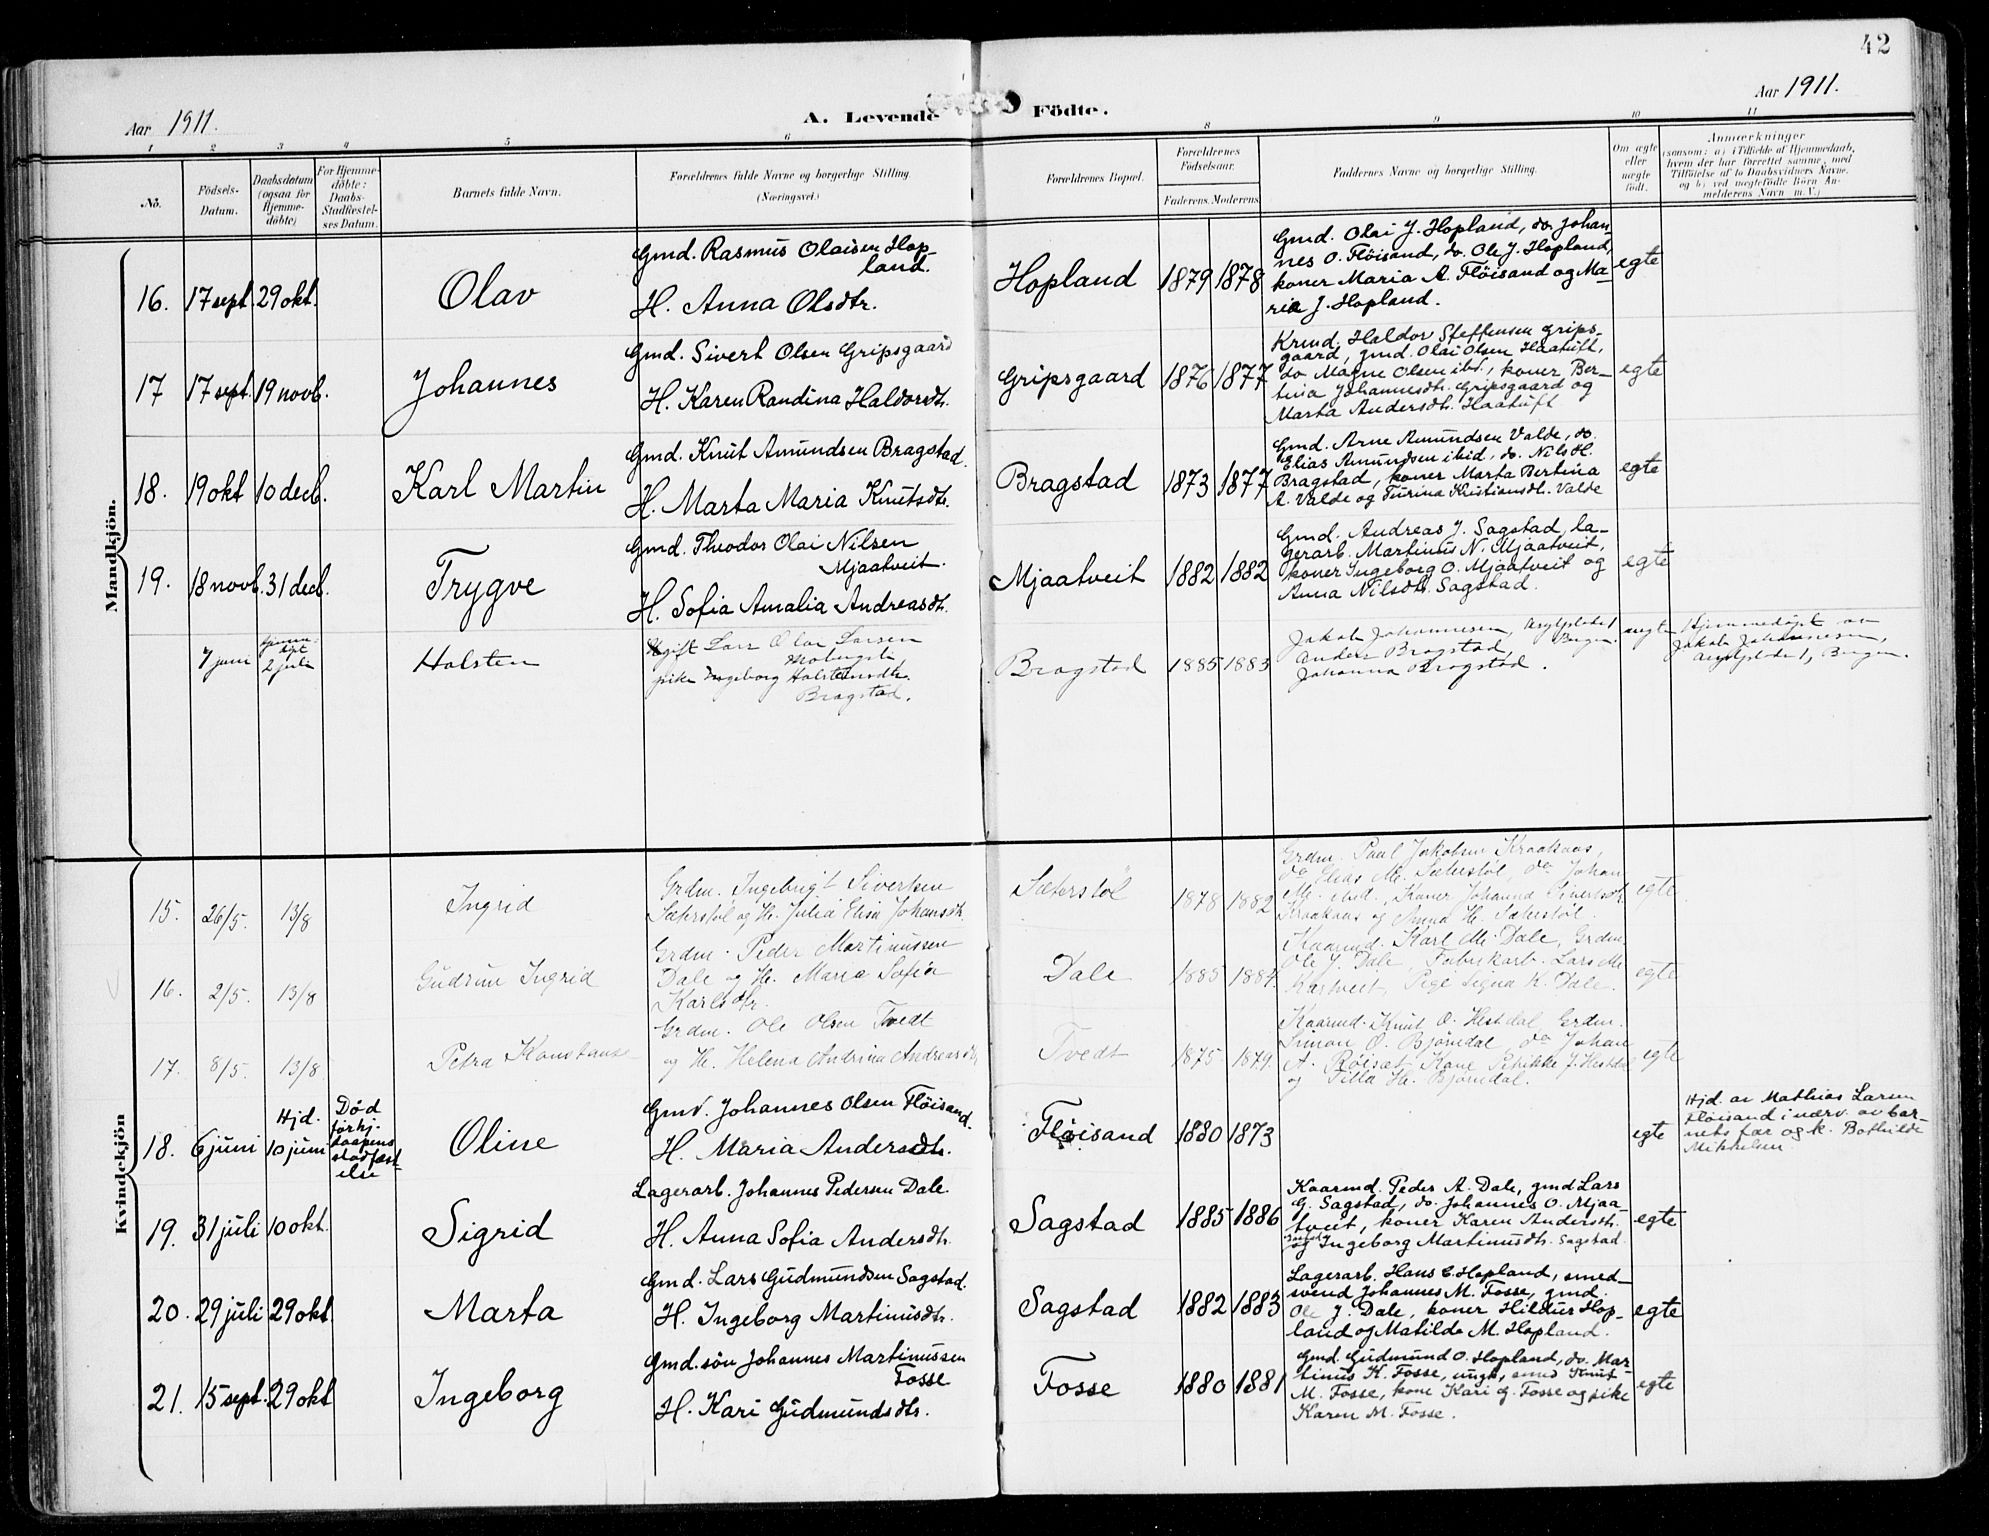 42
Aar 1911.
A. Levende Födte.
Aar 1911.
1 2 3 4 5 6 8 9 10 11
No.
Födsels-
Datum.
Daabsdatum
(ogsaa for
Hjemme-
döbte)
For Hjemme-
döbte:
Daabs-
Stadfæstel-
ses Datum.
Barnets fulde Navn.
Forældrenes fulde Navne og borgerlige Stilling.
(Næringsvei.)
Forældrenes Bopæl.
Forældrenes
Födselsaar.
Faderens. Moderens.
Faddernes Navne og borgerlige Stilling.
Om ægte
eller
uægte
födt.
Anmærkninger
(saasom: a) i Tilfælde af Hjemmedaab,
hvem der har forrettet samme, med
Tilföielse af to Daabsvidners Navne.
og b) ved uægtefödte Börn An-
melderens Navn m. V.)
Mandkjön.
16. 17 sept. 29 okt. Olav
Gmd. Rasmus Olaisen Hop-
land.
H. Anna Olsdtr.
Hopland 1879 1878
Gmd. Olai J. Hopland, do. Johan-
nes O. Flöisand, do. Ole J. Hopland,
koner Maria A. Flöisand og Ma-
ria J. Hopland.
egte
17 17 sept. 19 novb. Johannes
Gmd. Sivert Olsen Gripsgaard
H. Karen Randina Haldorsdtr.
Gripsgaard 1876 1877
Krmd. Haldor Steffensen Grips-
gaard, gmd. Olai Olsen Haatuft,
do Magne Olsen ibd., koner Ber-
tina Johannesdtr. Gripsgaard og
Marta Andersdtr. Haatuft
egte
18. 19 okt 10 decb. Karl Martin
Gmd. Knut Amundsen Bragstad.
H. Marta Maria Knutsdtr.
Bragstad 1873 1877
Gmd. Arne Amundsen Valde, do.
Elias Amundsen ibid, do. Nils H.
Bragstad, koner Marta Bertina
A. Valde og Turina Kristiansdtr. Valde
egte
19. 18 novb. 31 decb. Trygve
Gmd. Theodor Olai Nilsen
Mjaatveit.
H. Sofia Amalia Andreasdtr.
Mjaatveit 1882 1882
Gmd. Andreas J. Sagstad, la-
gerarb. Martinus N. Mjaatveit,
koner Ingeborg O. Mjaatveit og
Anna Nilsdtr. Sagstad.
egte
7 juni
2 juli
Halsten
Ugift Lars Olai Larsen
pike Ingeborg Halstensdtr.
Bragstad.
Bragstad 1885 1883
Jakob Johannesen, Bergen.
Anders Bragstad,
Johanna Bragstad.
uegte
Hjemmedøpt av
Jakob Johannesen,
Bergen.
Kvindekjön
15. 26/5. 13/8 Ingrid
Grdm. Ingebrigt Sivertsen
Sæterstøl og H. Julia Elisa Johansdtr.
Sæterstøl 1878 1882
Grdm. Paul Jakobsen Kraakaas,
do Elias M. Sæterstøl, do Johan
M. ibid., Koner Johanna Sivertsdtr
Kraakaas og Anna H. Sæterstøl.
egte
16. 2/5. 13/8 Gudrun Ingrid
Grdm. Peder Martinussen
Dale og H. Maria Sofia
Karlsdtr.
Dale 1885 1884.
Kaarmd. Karl M. Dale, Grdm.
Ole J. Dale, Fabrikarb. Lars M.
Kartveit, Pige Signa K. Dale.
egte
17. 8/5. 13/8 Petra Konstanse
Grdm. Ole Olsen Tvedt
og H. Helena Andrina Andreasdtr.
Tvedt 1875 1879.
Kaarmd. Knut O. Hestdal, Grdm.
Simon O. Bjørndal, do Johan
A. Røisæt, Kone Petrikke J. Hestdal
og Tilla H. Bjørndal.
egte
18. 6 juni
Hjd.
10 juni
Död
förhj.
daapens
stadfæst-
else
Oline
Gmd. Johannes Olsen Flöisand.
H. Maria Andersdtr.
Flöisand 1880 1873
egte
Hjd. av Mathias Larsen
Flöisand i nærv. av bar-
nets far og k. Bothilde
Mikkelsen.
19. 31 juli 10 okt. Sigrid
Lagerarb. Johannes Pedersen Dale.
H. Anna Sofia Andersdtr.
Sagstad 1885 1886
Kaarmd. Peder A. Dale, gmd Lars
G. Sagstad, do. Johannes O. Mjaa-
tveit, koner Karen Andersdtr.
og Ingeborg Martinusdtr. Sagstad.
egte
20. 29 juli 29 okt. Marta
Gmd. Lars Gudmundsen Sagstad.
H. Ingeborg Martinusdtr.
Sagstad 1882 1883
Lagerarb. Hans E. Hopland, smed-
svend Johannes M. Fosse, gmd.
Ole J. Dale, koner Hildur Hop-
land og Matilda M. Hopland.
egte
21. 15 sept. 29 okt Ingeborg
Gmd. sön Johannes Martinussen
Fosse
H. Kari Gudmundsdtr.
Fosse 1880 1881
Gmd. Gudmund O. Hopland, do. Mar-
tinus K. Fosse, ungk. smed Knut
M. Fosse, kone Kari G. Fosse og pike
Karen M. Fosse.
egte